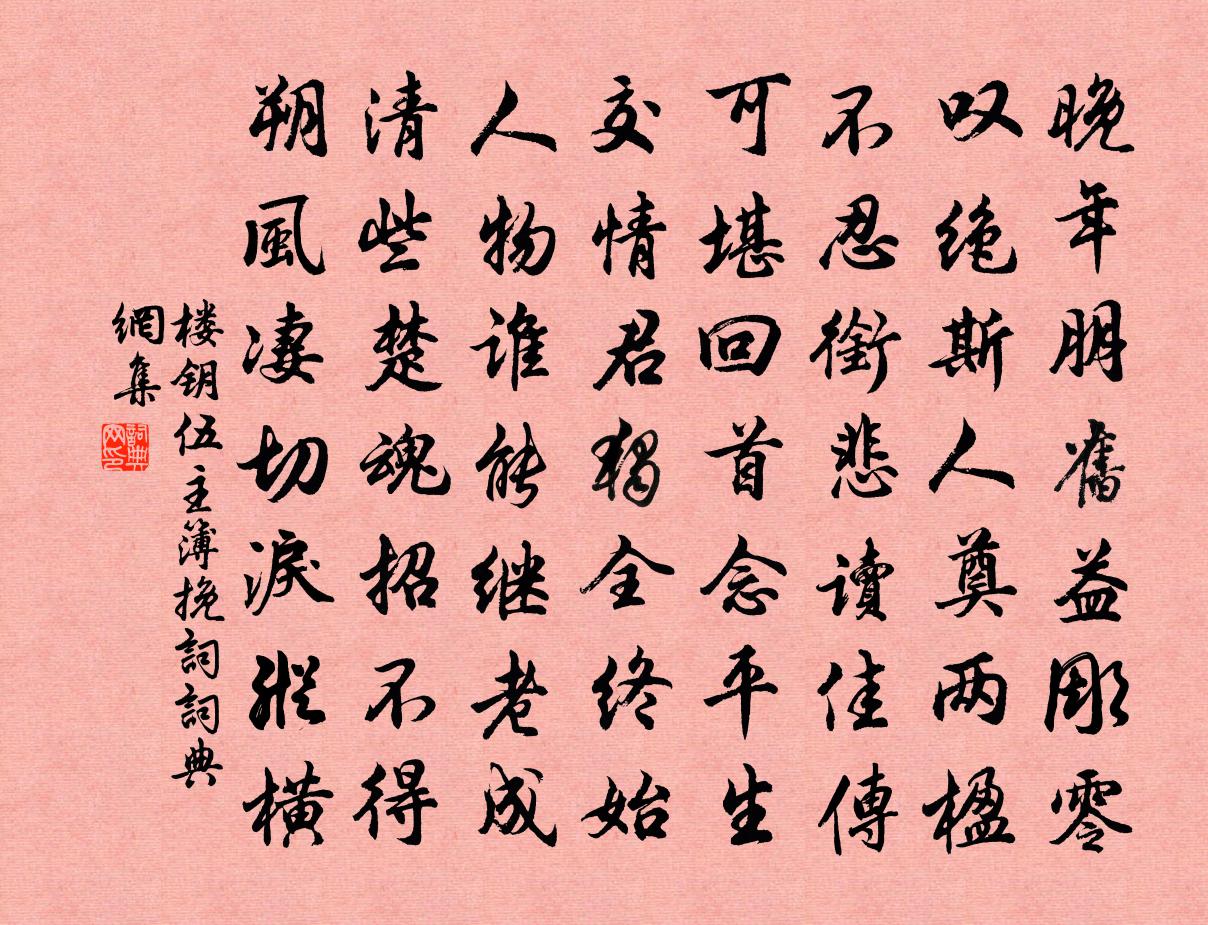 晚年朋舊益彫零
叹绝斯人奠两楹
不忍銜悲讀佳傳
可堪回首念平生
交情君独全终始
人物谁能继老成
清些楚魂招不得
朔風凄切淚縱橫
楼钥伍主簿挽詞詞典
網集
詞典
网印